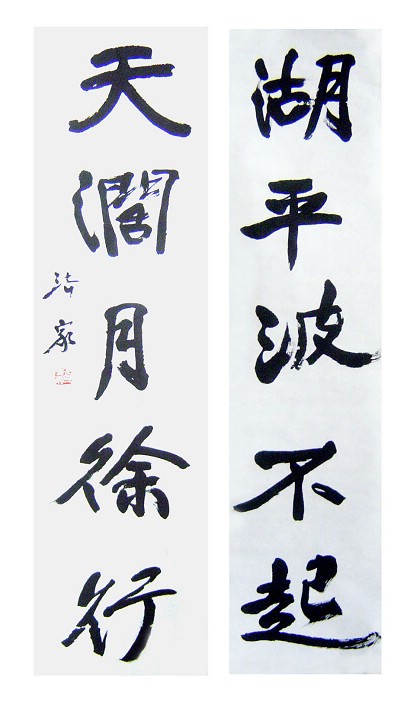 湖平波不起
天濶月徐行